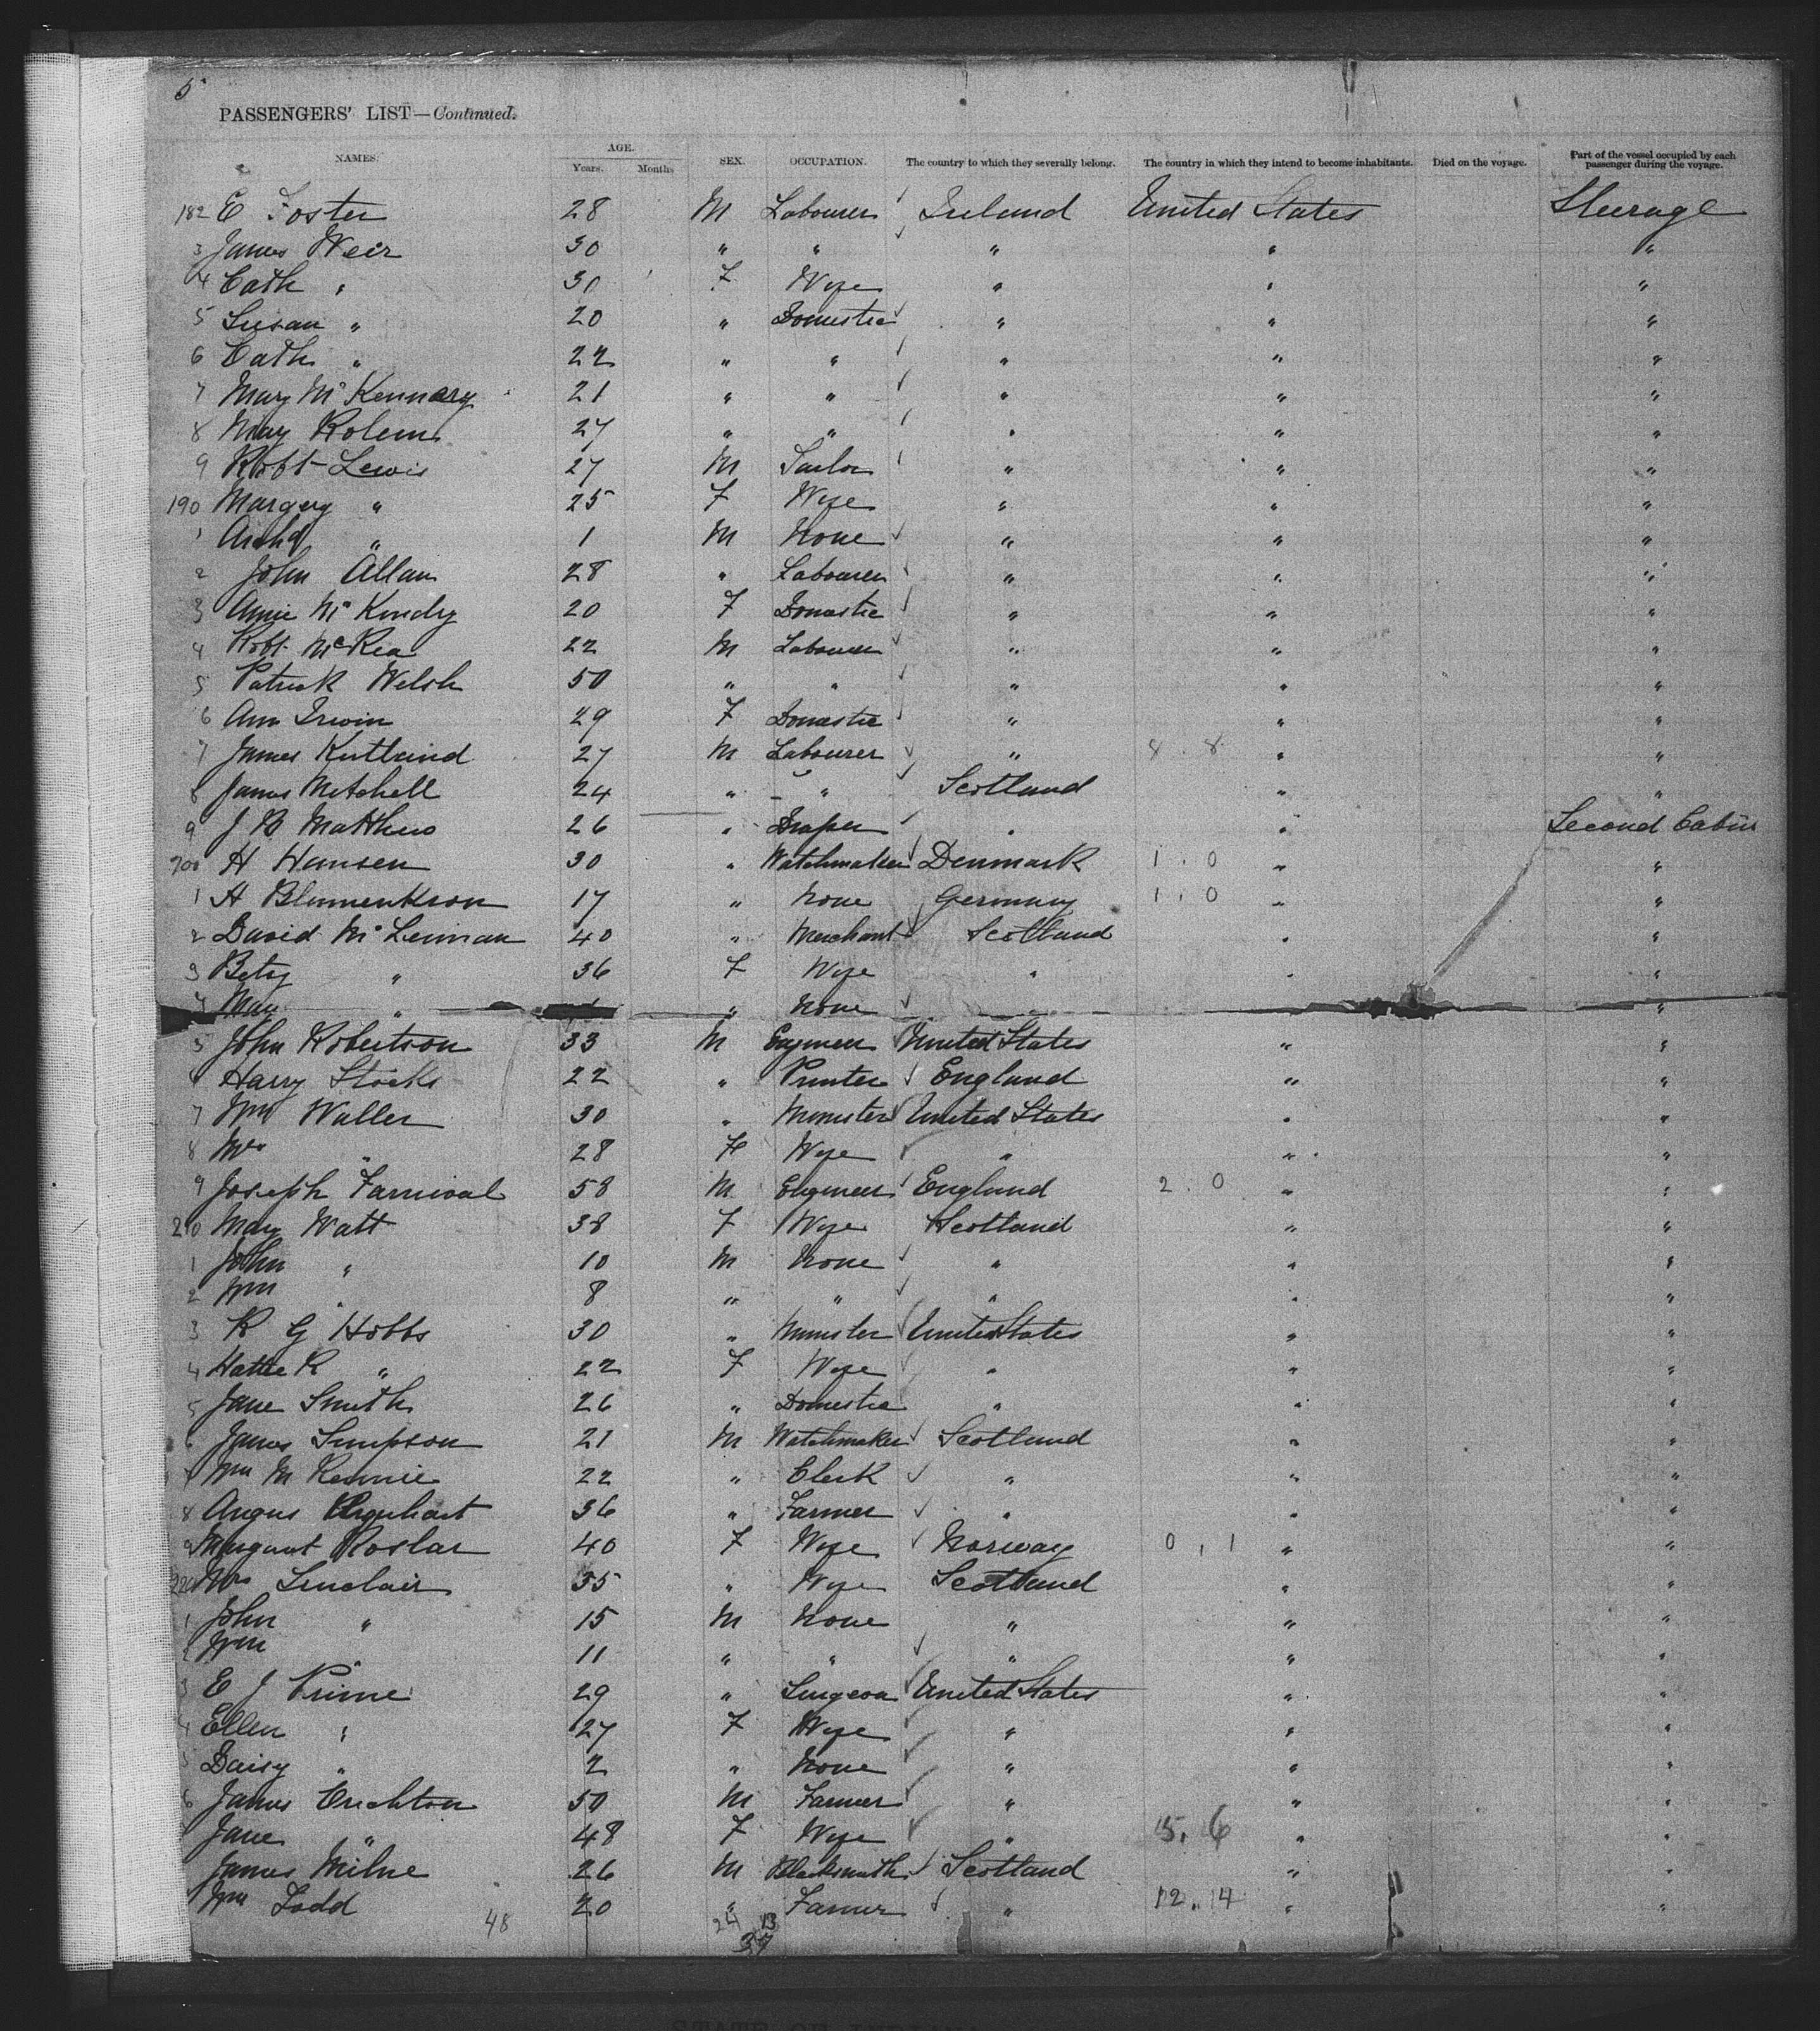 5
PASSENGERS' LIST—Continued.
NAMES. AGE. Years. Months SEX. OCCUPATION. The country to which they severally belong. The country in which they intend to become inhabitants. Died on the voyage. Part of the vessel occupied by each passenger during the voyage.
182 E Foster 28 M Labourer Ireland United States Steerage
3 James Weir 30 " " " " "
4 Cath " 30 F Wife " " "
5 Susan " 20 " Domestic " " "
6 Cath " 22 " " " " "
7 Mary Mc 21 " " " " "
8 May 27 " " " " "
9 Robt Lewis 27 M " " "
190 Margery " 25 F Wife " " "
1 Archd " 1 M None " " "
2 John Allan 28 " Labourer " " "
3 Annie Mc Kendry 20 F Domestic " " "
4 Robt McRea 22 M Labourer " " "
5 Patrick Welsh 50 " " " " "
6 Ann Irwin 29 F Domestic " " "
7 James 27 M Labourer " 8 . 8 " "
8 James Mitchell 24 " " Scotland " "
9 J B Matthews 26 " Draper " " Second Cabin
200 H Hansen 30 " Watchmaker Denmark 1 . 0 " "
1 A 17 " None Germany 1 . 0 " "
2 David Mc Lennan 40 " Merchant Scotland " "
3 Betsy " 36 F Wife " " "
4 May " " None " "
5 John Robertson 33 M Engineer United States " "
6 Harry Stocks 22 " Printer England " "
7 Wm Waller 30 " Minister United States " "
8 Mrs " 28 F Wife " " "
9 Joseph Farnival 58 M Engineer England 2 . 0 " "
210 Mary Watt 38 F Wife Scotland " "
1 John " 10 M None " " "
2 Wm " 8 " " " " "
3 R G Hobbs 30 " Minister United States " "
4 Hattie R " 22 F Wife " " "
5 Jane Smith 26 " Domestic " " "
6 James Simpson 21 M Watchmaker Scotland " "
7 Wm M Rennie 22 " Clerk " " "
8 Angus Urquhart 36 " Farmer " " "
9 Margaret Roslar 40 F Wife Norway 0 . 1 " "
220 Mrs Sinclair 35 " Wife Scotland " "
1 John " 15 M None " " "
2 Wm " 11 " " " " "
3 E J Prime 29 " Surgeon United States " "
4 Ellen " 27 F Wife " " "
5 Daisy " 2 " None " " "
6 James Crichton 50 M Farmer " " "
Jane " 48 F Wife " 15 . 6 " "
James Milne 26 M Blacksmith Scotland " "
Wm Todd 20 " Farmer " 12 . 14 " "
48 24 13
37